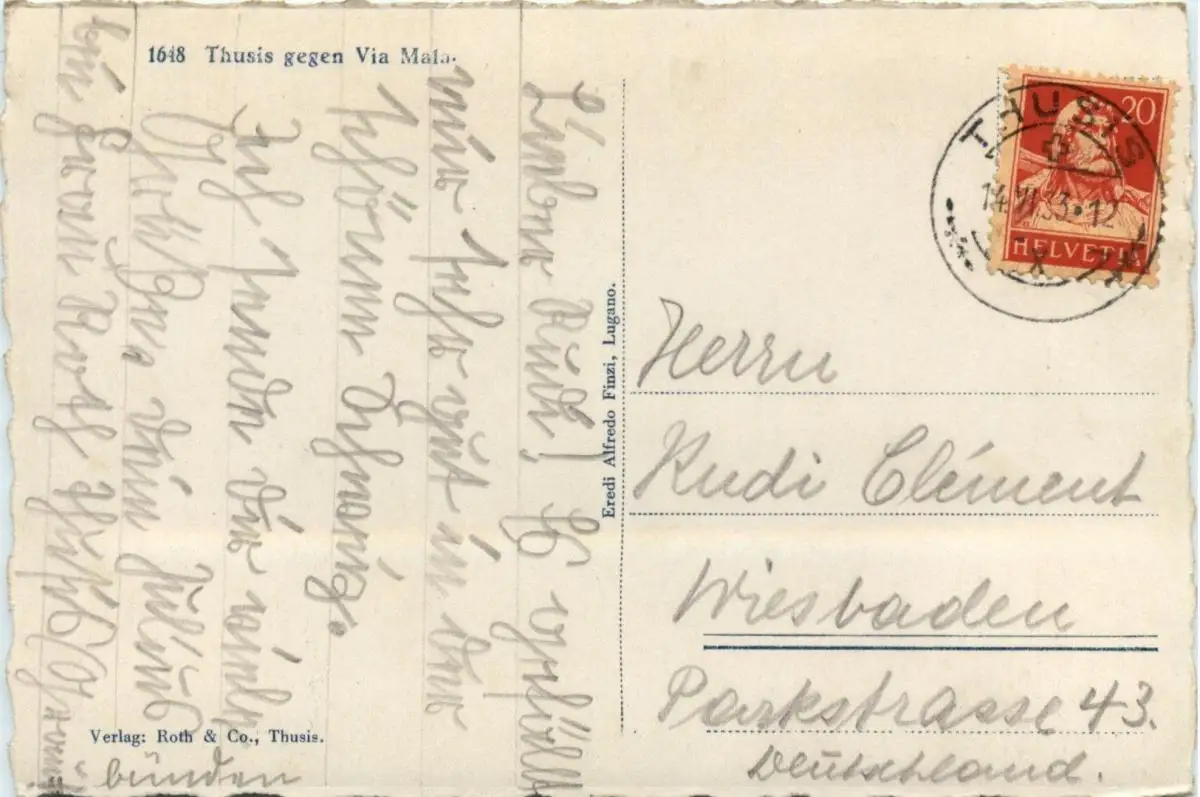 1648 Thusis gegen Via Mala.
Lieber Rudi! Es gefällt
mir sehr gut in der
schönen Schweiz.
Ich sende dir
dein Julius
bei Frau
bünden
Verlag: Roth & Co., Thusis.
Eredi Alfredo Finzi, Lugano.
20
HELVETIA
THUSIS
14.VI.33•12
Herrn
Rudi Clément
Wiesbaden
Parkstrasse 43.
Deutschland.